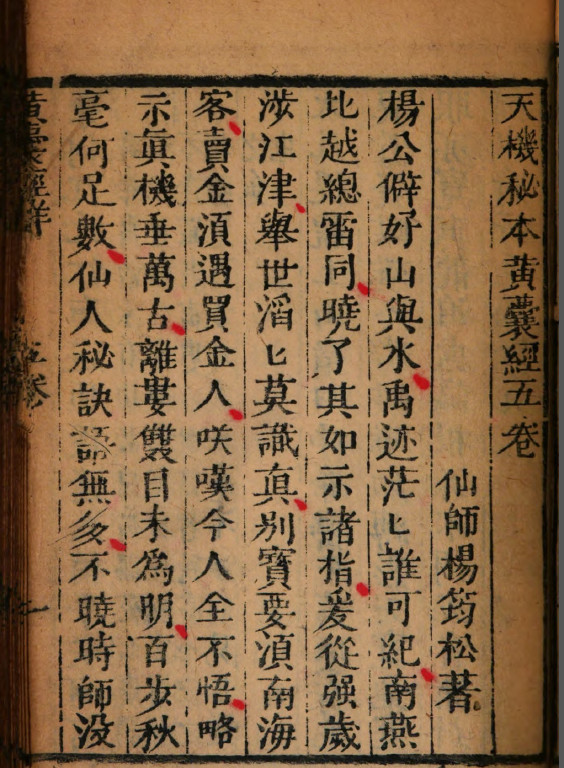 天機秘本黃囊經五卷
仙師楊筠松著
楊公僻好山與水禹迹茫匕誰可紀南燕
比越總雷同曉了其如示諸指爰從强歲
涉江津舉世滔匕莫識眞別寶要湏南海
客賣金湏遇買金人咲嘆今人全不悟略
示眞機垂萬古離婁雙目未為明百步秋
毫何足數仙人秘訣語無多不曉時師没
黃囊經詳